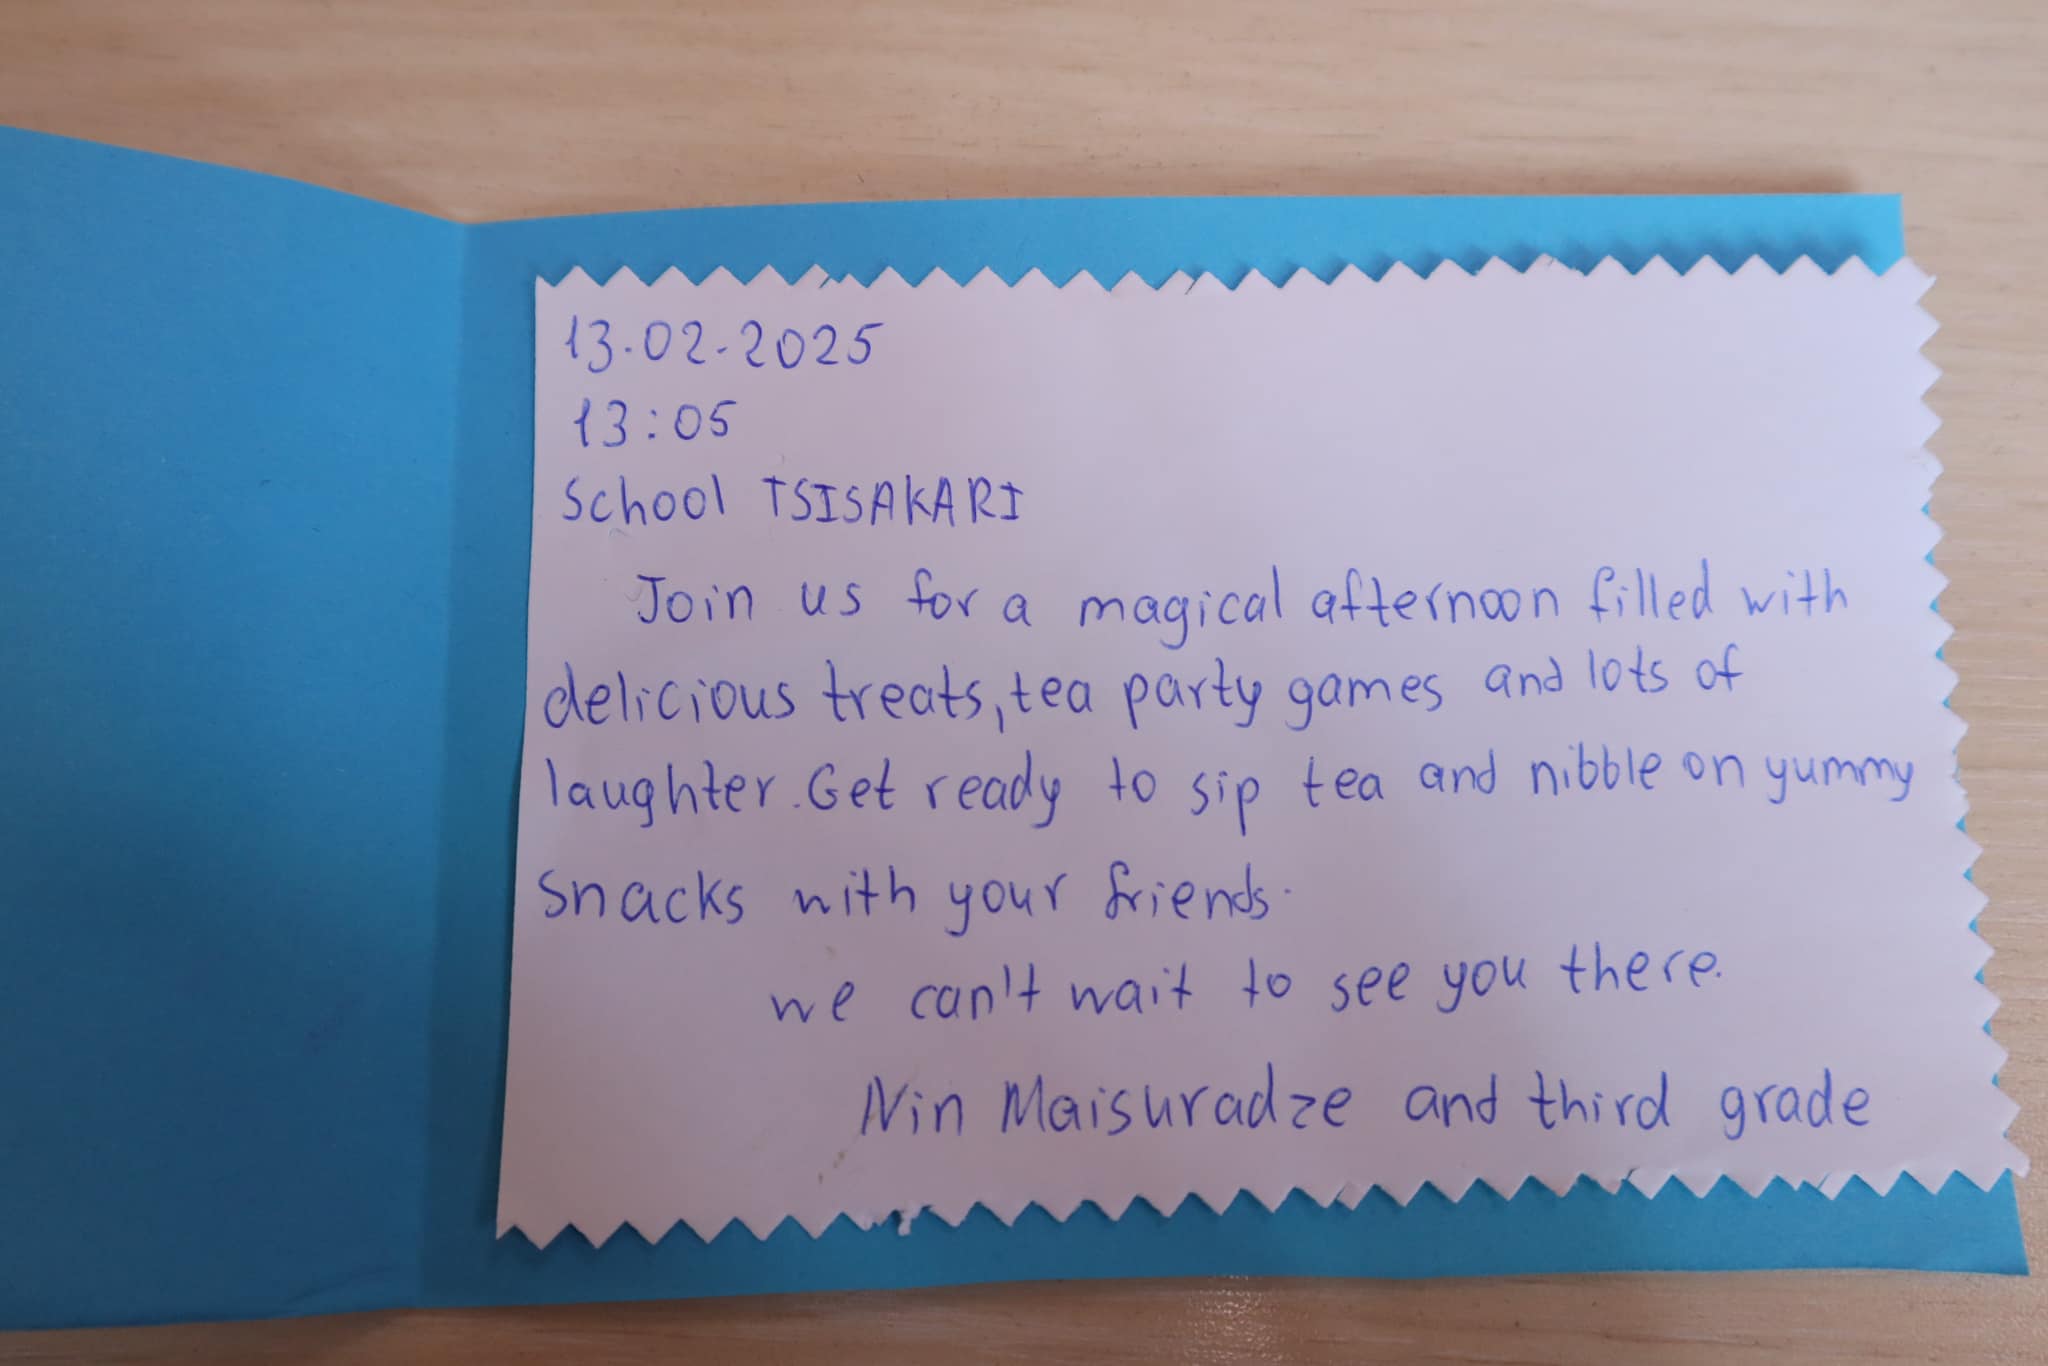 13.02.2025
13:05
School TSISAKARI
Join us for a magical afternoon filled with
delicious treats, tea party games and lots of
laughter. Get ready to sip tea and nibble on yummy
snacks with your friends.
we can't wait to see you there.
Nin Maisuradze and third grade